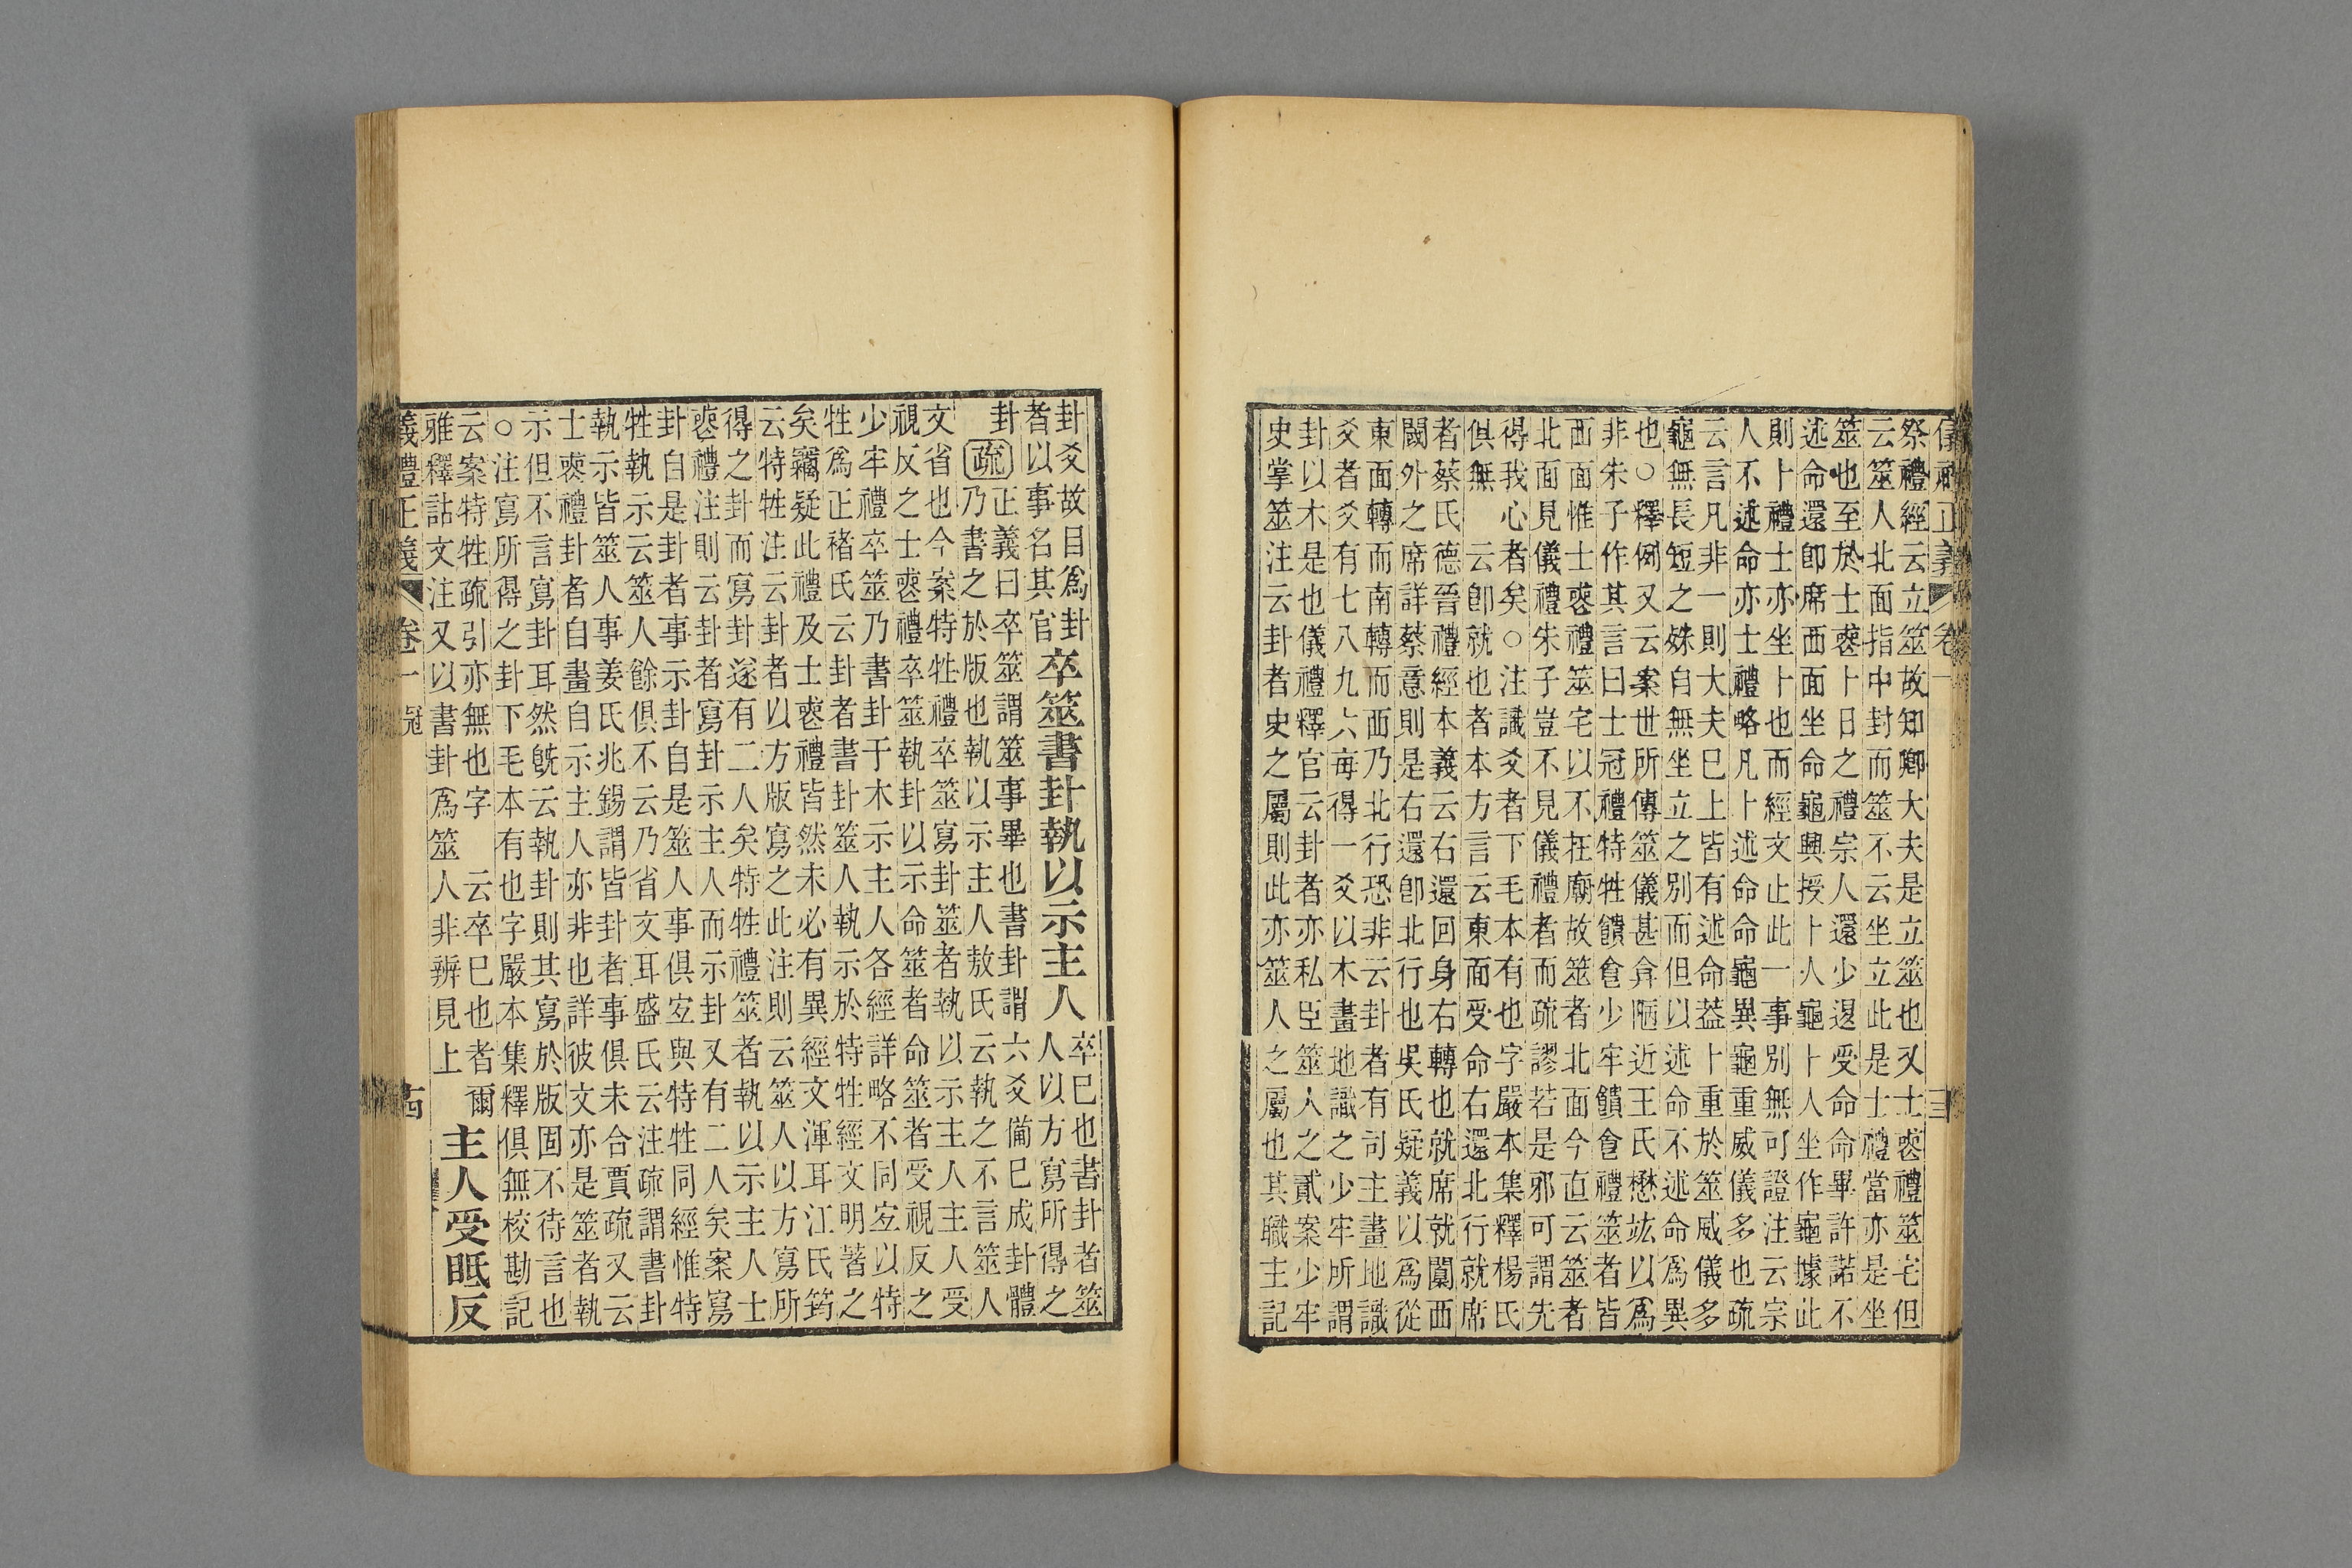 祭禮經云立筮故知卿大夫是立筮也又士喪禮筮宅但
云筮人北面指中封而筮不云坐立此是士禮當亦是坐
筮也至於士喪卜日之禮宗人還少退受命命畢許諾不
述命還卽席西面坐命龜興授卜人龜卜人坐作龜據此
則卜禮士亦坐卜也而經文止此一事別無可證注云宗
人不述命亦士禮略凡卜述命命龜異龜重威儀多也疏
云言凡非一則大夫已上皆有述命葢卜重於筮威儀多
龜無長短之殊自無坐立之別而但以述命不述命爲異
也○釋例又云案世所傳筮儀甚弇陋近王氏懋竑以爲
非朱子作其言曰士冠禮特牲饋食少牢饋食禮筮者皆
西面惟士喪禮筮宅以不在廟故筮者北面今直云筮者
北面見儀禮朱子豈不見儀禮者而疏謬若是邪可謂先
得我心者矣○注識爻者下毛本有也字嚴本集釋楊氏
俱無 云卽就也者本方言云東面受命右還北行就席
者蔡氏德晉禮經本義云右還回身右轉也就席就闑西
閾外之席詳蔡意則是右還卽北行也吳氏疑義以爲從
東面轉而南轉而西乃北行恐非云卦者有司主畫地識
爻者爻有七八九六每得一爻以木畫地識之少牢所謂
卦以木是也儀禮釋官云卦者亦私臣筮人之貳案少牢
史掌筮注云卦者史之屬則此亦筮人之屬也其職主記
卦爻故目爲卦
者以事名其官
卒筮書卦執以示主人
卒已也書卦者筮
人以方寫所得之
卦
疏
正義曰卒筮謂筮事畢也書卦謂六爻備已成卦體
乃書之於版也執以示主人敖氏云執之不言筮人
文省也今案特牲禮卒筮寫卦筮者執以示主人主人受
視反之士喪禮卒筮執卦以示命筮者命筮者受視反之
少牢禮卒筮乃書卦于木示主人各經詳略不同宜以特
牲爲正褚氏云卦者書卦筮人執示於特牲經文明著之
矣竊疑此禮及士喪禮皆然未必有異經文渾耳江氏筠
云特牲注云卦者以方版寫之此注則云筮人以方寫所
得之卦而寫卦遂有二人矣特牲禮筮者執以示主人士
喪禮注則云卦者寫卦示主人而示卦又有二人矣案寫
卦自是卦者事示卦自是筮人事俱宜與特牲同經惟特
牲執示云筮人餘俱不云乃省文耳盛氏云注疏謂書卦
執示皆筮人事姜氏兆錫謂皆卦者事俱未合賈疏又云
士喪禮卦者自畫自示主人亦非也詳彼文亦是筮者執
示但不言寫卦耳然旣云執卦則其寫於版固不待言也
○注寫所得之卦下毛本有也字嚴本集釋俱無校勘記
云案特牲疏引亦無也字 云卒已也者爾
雅釋詁文注又以書卦爲筮人非辨見上
主人受眂反
禮正義 卷一 冠